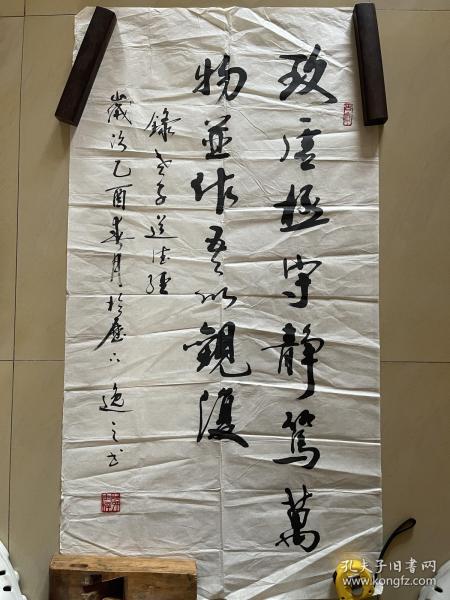 致虛極守靜篤萬
物並作吾以觀復
錄老子道德經
歲次乙酉春月於歷下逸之書
孔夫子旧书网
www.kongfz.com